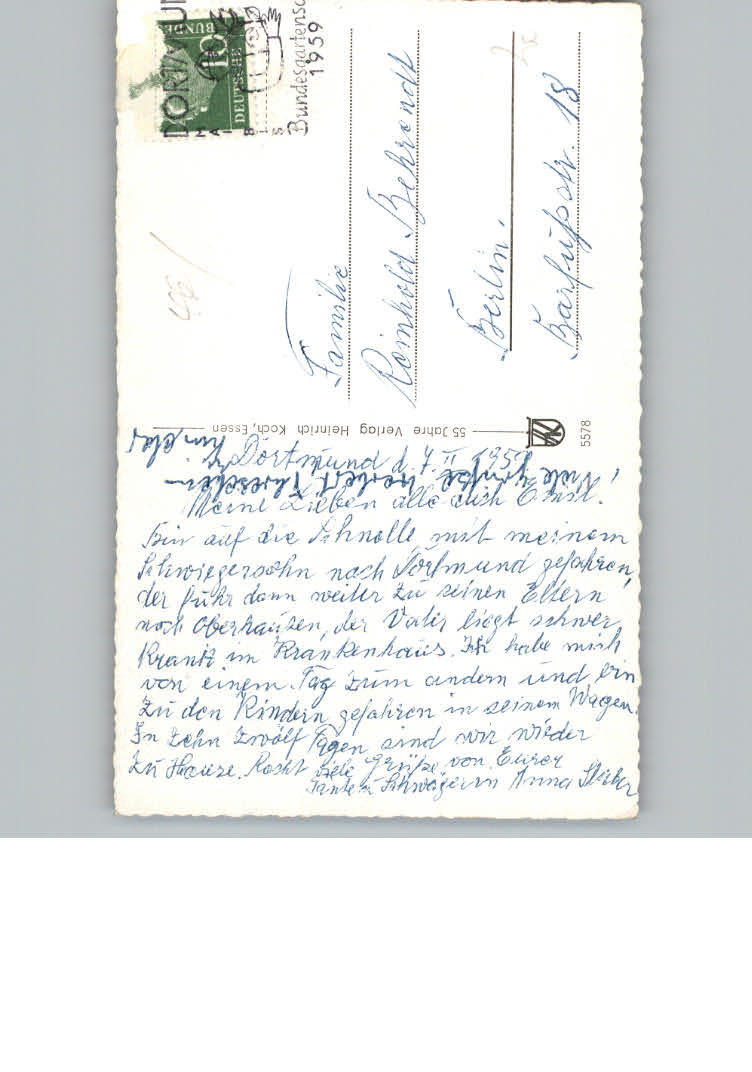 DORTMUN
MAI BIS
Bundesgartensc
1959
DEUTSCHE
BUNDE
10
Familie
Reinhold Behrendt
Berlin.
Barfußstr. 18
55 Jahre Verlag Heinrich Koch, Essen
5578
Dortmund d. 7. II 195
Meine Lieben alle auch Ernst.
Bin auf die Schnelle mit meinem
Schwiegersohn nach Dortmund gefahren,
der fuhr dann weiter zu seinen Eltern
nach Oberhausen, der Vater liegt schwer
Krank im Krankenhaus. Ich habe mich
von einem Tag zum andern und bin
zu den Kindern gefahren in seinem Wagen.
In Zehn zwölf Tagen sind wir wieder
zu Hause. Recht viele Grüße von Eurer
Tante u. Schwägerin Anna
Viele Grüße Herbert
Kinder